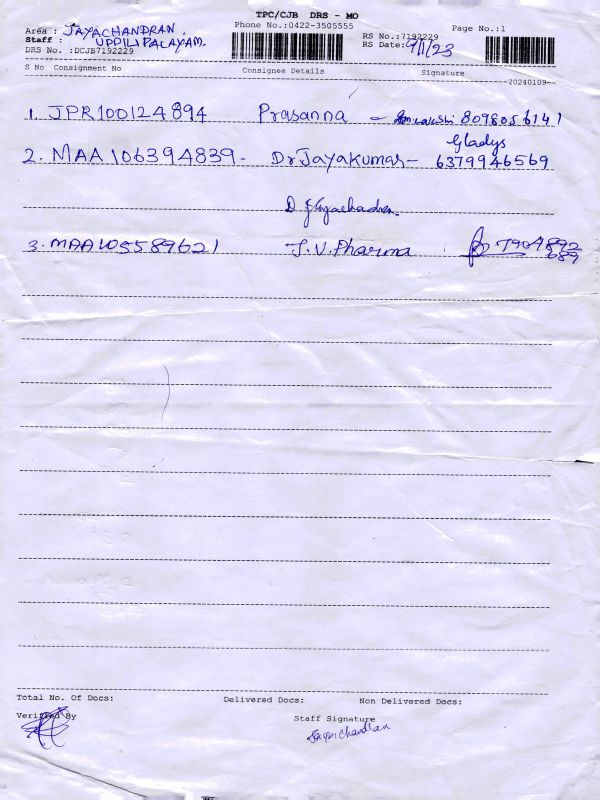 TPC/CJB DRS - MO
Area : JAYACHANDRAN. Phone No.:0422-3505555 Page No.:1
Staff : UPPILIPALAYAM. RS No.:7192229
DRS No. :DCJB7192229 RS Date: 9/1/23
S No Consignment No Consignee Details Signature
20240109
1. JPR100124894 Prasanna - 8098056141
Gladys
2. MAA106394839- Dr Jayakumar- 6379946569
3. MAA105589621 J.V. Pharma 7904892
689
Total No. Of Docs: Delivered Docs: Non Delivered Docs:
Verified By Staff Signature